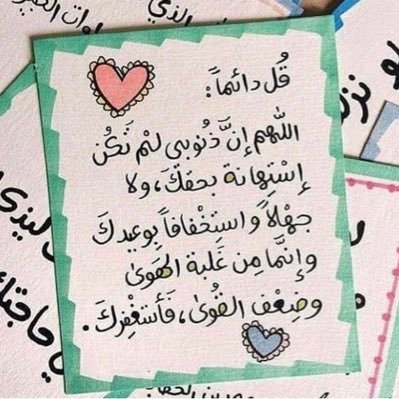 قُل دائماً :
اللهم إنَّ ذُنوبي لمْ تَكُن
إسْتِهانة بحقكَ، ولا
جهْلاً و استِخْفافاً بوعيدكَ
وإنَّما مِن غَلبة الهَوىٰ
وضِعْف القُوىٰ، فَأستَغْفِركَ .
حاجتك